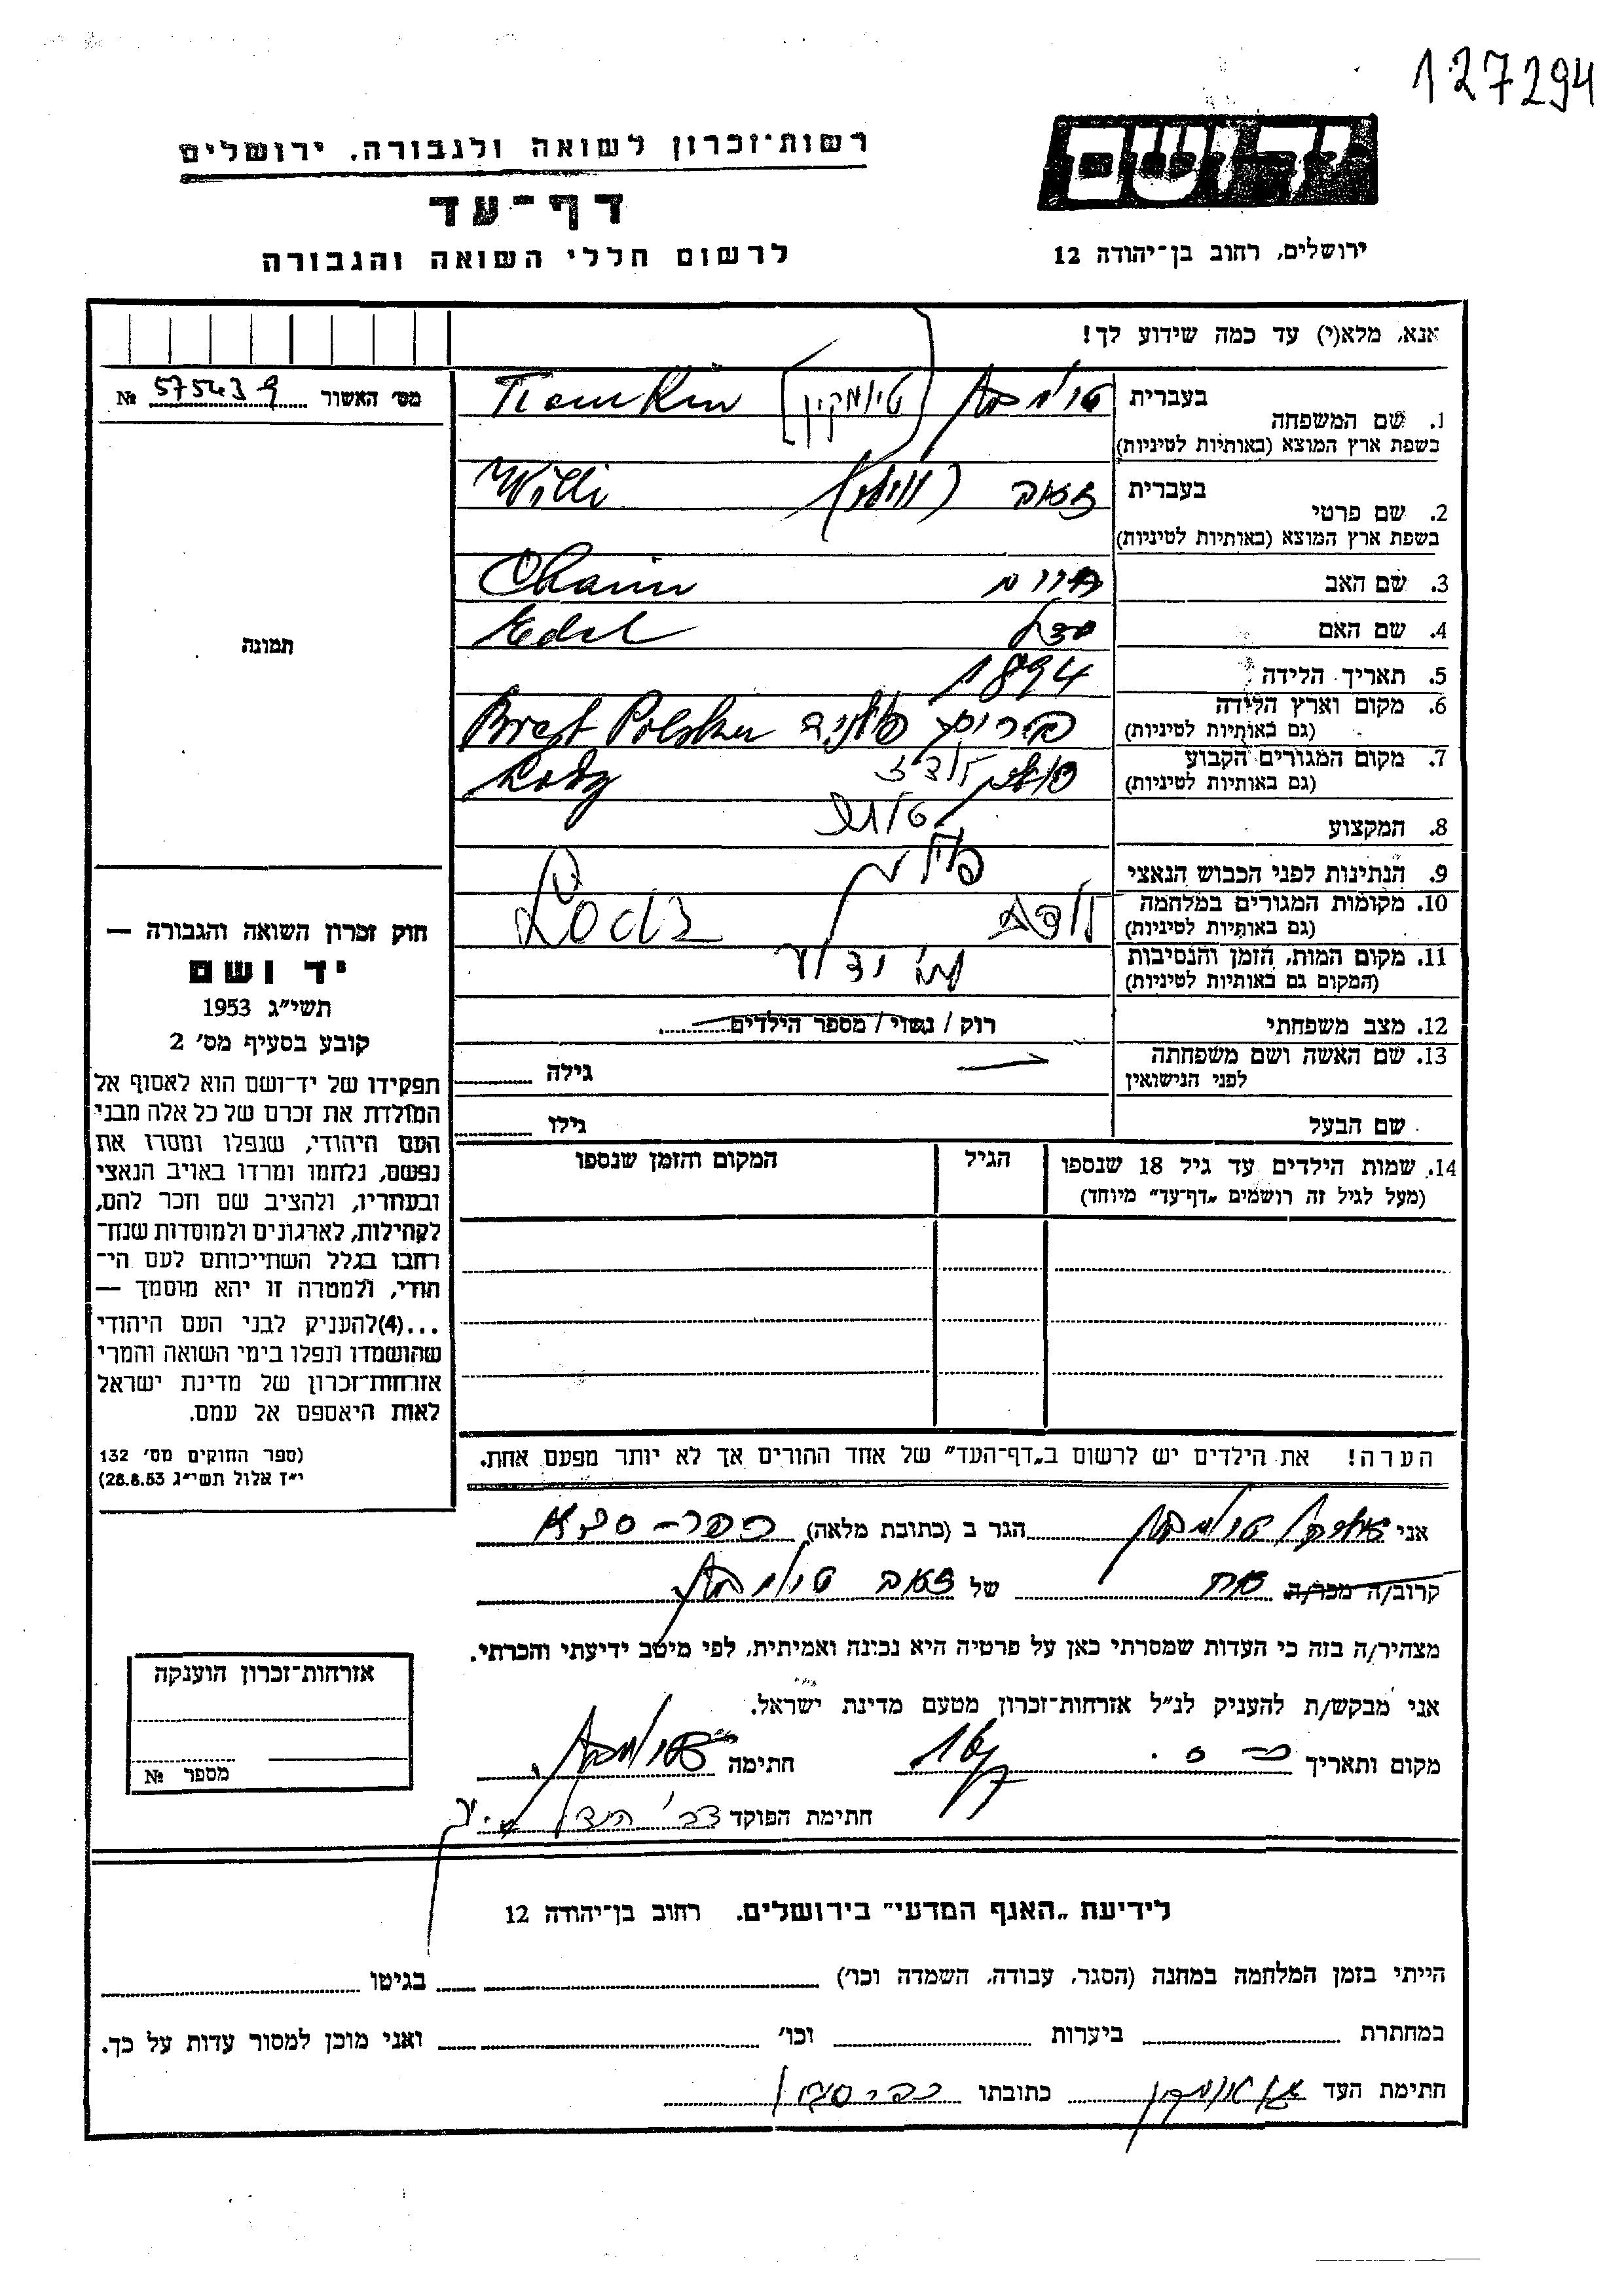 127294
יד ושם
רשות־זכרון לשואה ולגבורה, ירושלים
דף־עד
לרשום חללי השואה והגבורה
ירושלים, רחוב בן־יהודה 12
אנא, מלא(י) עד כמה שידוע לך!
מס׳ האשור 575439 №
תמונה
1. שם המשפחה בעברית טיומקין [טיומקין] Tiomkin
בשפת ארץ המוצא (באותיות לטיניות)
2. שם פרטי בעברית זאב (ווילי) Willi
בשפת ארץ המוצא (באותיות לטיניות)
3. שם האב חיים Chaim
4. שם האם Edel
5. תאריך הלידה 1894
6. מקום וארץ הלידה פולניה Brest Polska
(גם באותיות לטיניות)
7. מקום המגורים הקבוע לודז Lodz
(גם באותיות לטיניות)
8. המקצוע
9. הנתינות לפני הכבוש הנאצי
10. מקומות המגורים במלחמה לודז Lodz
(גם באותיות לטיניות)
11. מקום המות, הזמן והנסיבות
(המקום גם באותיות לטיניות)
12. מצב משפחתי רוק / נשוי / מספר הילדים
13. שם האשה ושם משפחתה גילה
לפני הנישואין
שם הבעל גילו
14. שמות הילדים עד גיל 18 שנספו הגיל המקום והזמן שנספו
(מעל לגיל זה רושמים „דף־עד״ מיוחד)
חוק זכרון השואה והגבורה —
יד ושם
תשי״ג 1953
קובע בסעיף מס׳ 2
תפקידו של יד־ושם הוא לאסוף אל
המולדת את זכרם של כל אלה מבני
העם היהודי, שנפלו ומסרו את
נפשם, נלחמו ומרדו באויב הנאצי
ובעוזריו, ולהציב שם וזכר להם,
לקהילות, לארגונים ולמוסדות שנח־
רבו בגלל השתייכותם לעם הי־
הודי, ולמטרה זו יהא מוסמך —
...(4)להעניק לבני העם היהודי
שהושמדו ונפלו בימי השואה והמרי
אזרחות־זכרון של מדינת ישראל
לאות היאספם אל עמם.
(ספר החוקים מס׳ 132
י״ז אלול תשי״ג 28.8.53)
הערה! את הילדים יש לרשום ב„דף־העד״ של אחד ההורים אך לא יותר מפעם אחת.
אני טיומקין הגר ב (כתובת מלאה) כפר-סבא
קרוב/ה מכר/ה אח של זאב טיומקין
מצהיר/ה בזה כי העדות שמסרתי כאן על פרטיה היא נכונה ואמיתית, לפי מיטב ידיעתי והכרתי.
אני מבקש/ת להעניק לנ״ל אזרחות־זכרון מטעם מדינת ישראל.
מקום ותאריך כ-ס. חתימה טיומקין
חתימת הפוקד
אזרחות־זכרון הוענקה
מספר №
לידיעת „האגף המדעי״ בירושלים. רחוב בן־יהודה 12
הייתי בזמן המלחמה במחנה (הסגר, עבודה, השמדה וכו׳) בגיטו
במחתרת ביערות וכו׳ ואני מוכן למסור עדות על כך.
חתימת העד טיומקין כתובתו כפר סבא